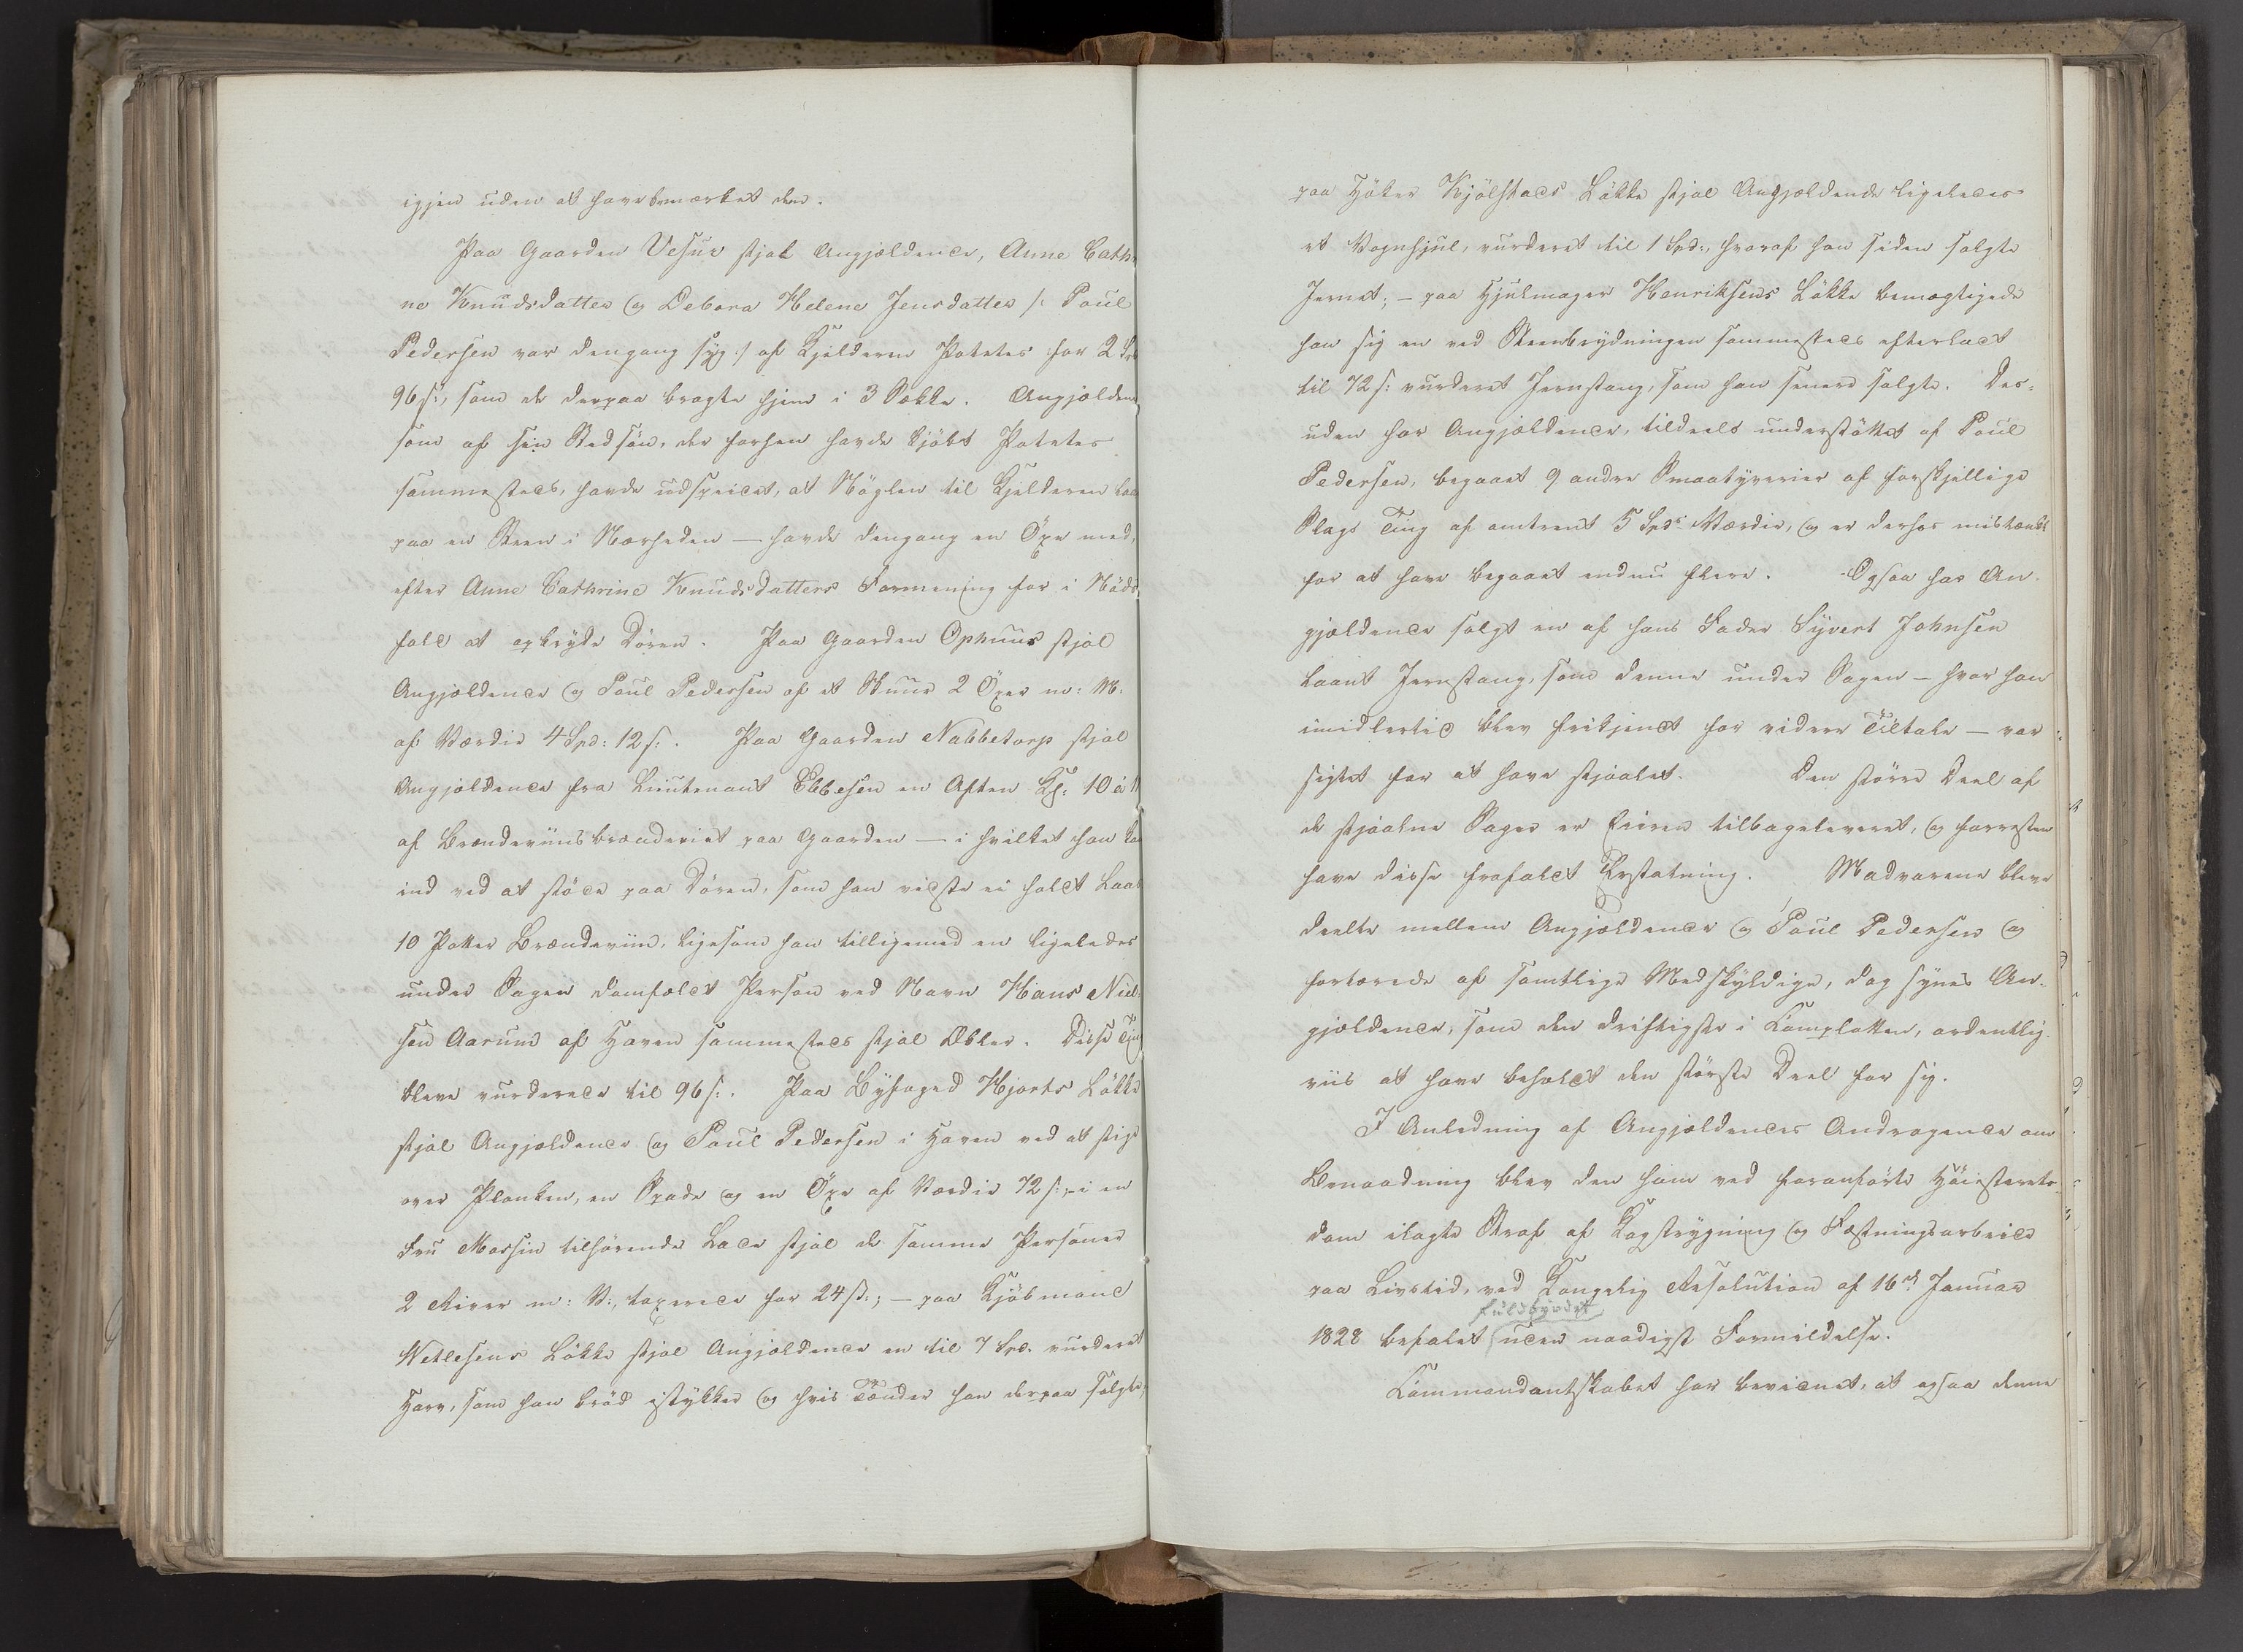 igjen uden at have bemærket dem.
Paa Gaarden Vesuv stjal Angjældende, Anne Cathri
ne Knudsdatter og Debora Helene Jensdatter /: Poul
Pedersen var dengang syg :/ af Kjelderen Potetes for 2 Spd
96 s:, som de derpaa bragte hjem i 3 Sække. Angjældende
som af sin Stedsøn, der forhen havde kjøbt Potetes
sammesteds, havde udspeidet, at Nøglen til Kjelderen laa
paa en Steen i Nærheden — havde dengang en Öxe med,
efter Anne Cathrine Knudsdatters Formening for i Nöds-
fald at opbryde Døren. Paa Gaarden Ophuus stjal
Angjældende og Poul Pedersen af et Skuur 2 Öxer m: M:
af Værdie 4 Spd: 12 s:. Paa Gaarden Nabbetorp stjal
Angjældende fra Lieutenant Ebbesen en Aften Kl: 10 à 11
af Brændeviinsbrænderiet paa Gaarden — i hvilket han kom
ind ved at støde paa Døren, som han vidste ei holdt Laas
10 Potter Brændeviin, ligesom han tilligemed en ligeledes
under Sagen domfældt Person ved Navn Hans Niel-
sen Aarum af Haven sammesteds stjal Æbler. Disse Ting
bleve vurderede til 96 s:. Paa Byfoged Hjorts Løkke
stjal Angjældende og Poul Pedersen i Haven ved at stige
over Planken, en Spade og en Öxe af Værdie 72 s:, – i en
Fru Massin tilhørende Lade stjal de samme Personer
2 River m: V:, taxerede for 24 s:; — paa Kjøbmand
Netlesens Løkke stjal Angjældende en til 7 Spd. vurderet
Harv, som han brød istykker og hvis Tænder han derpaa solgte;
paa Høker Kjølstads Løkke stjal Angjældende ligeledes
et Vognhjul, vurderet til 1 Spd:, hvoraf han siden solgte
Jernet; — paa Hjulmager Henriksens Løkke bemægtigede
han sig en ved Steenbrydningen sammesteds efterladt
til 72 s: vurderet Jernstang, som han senere solgte. Des-
uden har Angjældende, tildeels understøttet af Poul
Pedersen, begaaet 9 andre Smaatyverier af forskjellige
Slags Ting af omtrent 5 Spds Værdie, og er derhos mistænkt
for at have begaaet endnu flere. Ogsaa har An-
gjældende solgt en af hans Fader Syvert Johnsen
laant Jernstang, som denne under Sagen — hvor han
imidlertid blev frikjendt for videre Tiltale — var
sigtet for at have stjaalet. Den större Deel af
de stjaalne Sager er Eieren tilbageleveret, og forresten
have disse frafaldt Erstatning. Madvarene bleve
deelte mellem Angjældende og Poul Pedersen og
fortærede af samtlige Medskyldige, dog synes An-
gjældende, som den driftigste i Complotten, ordentlig-
viis at have beholdt den største Deel for sig.
I Anledning af Angjældendes Andragende om
Benaadning blev den ham ved foranførte Høiesterets-
dom ilagte Straf af Kagstrygning og Fæstningsarbeide
paa Livstid, ved Kongelig Resolution af 16de Januar
fuldbyrdet
1828 befalet uden naadigst Formildelse.
Commandantskabet har bevidnet, at ogsaa denne